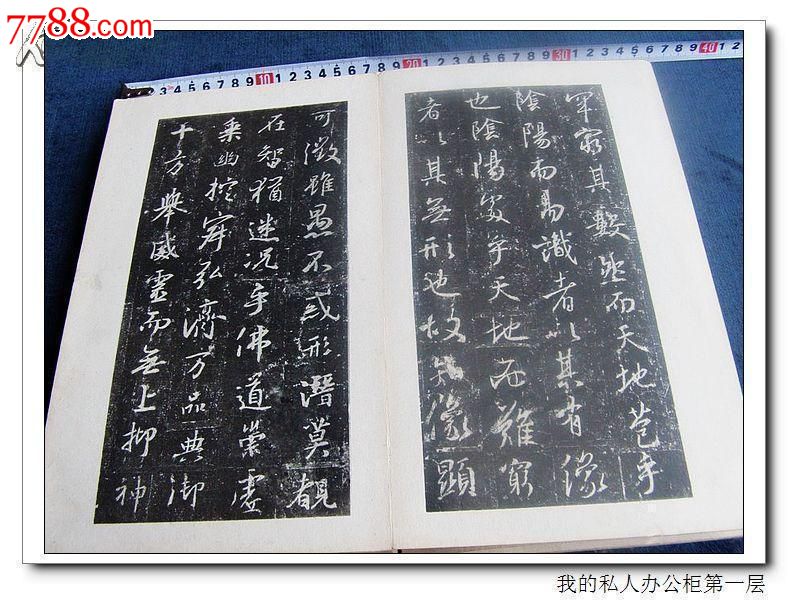 7788.com
3 4 5 6 7 8 9 10 1 2 3 4 5 6 7 8 9 20 1 2 3 4 5 6 7 8 9 30 1 2 3 4 5 6 7 8 9 40 1 2
罕窮其數然而天地苞乎
陰陽而易識者以其有像
也陰陽處乎天地而難窮
者以其無形也故知像顯
可徵雖愚不惑形潛莫覩
在智猶迷況乎佛道崇虛
乘幽控寂弘濟万品典御
十方舉威靈而無上抑神
我的私人办公柜第一层